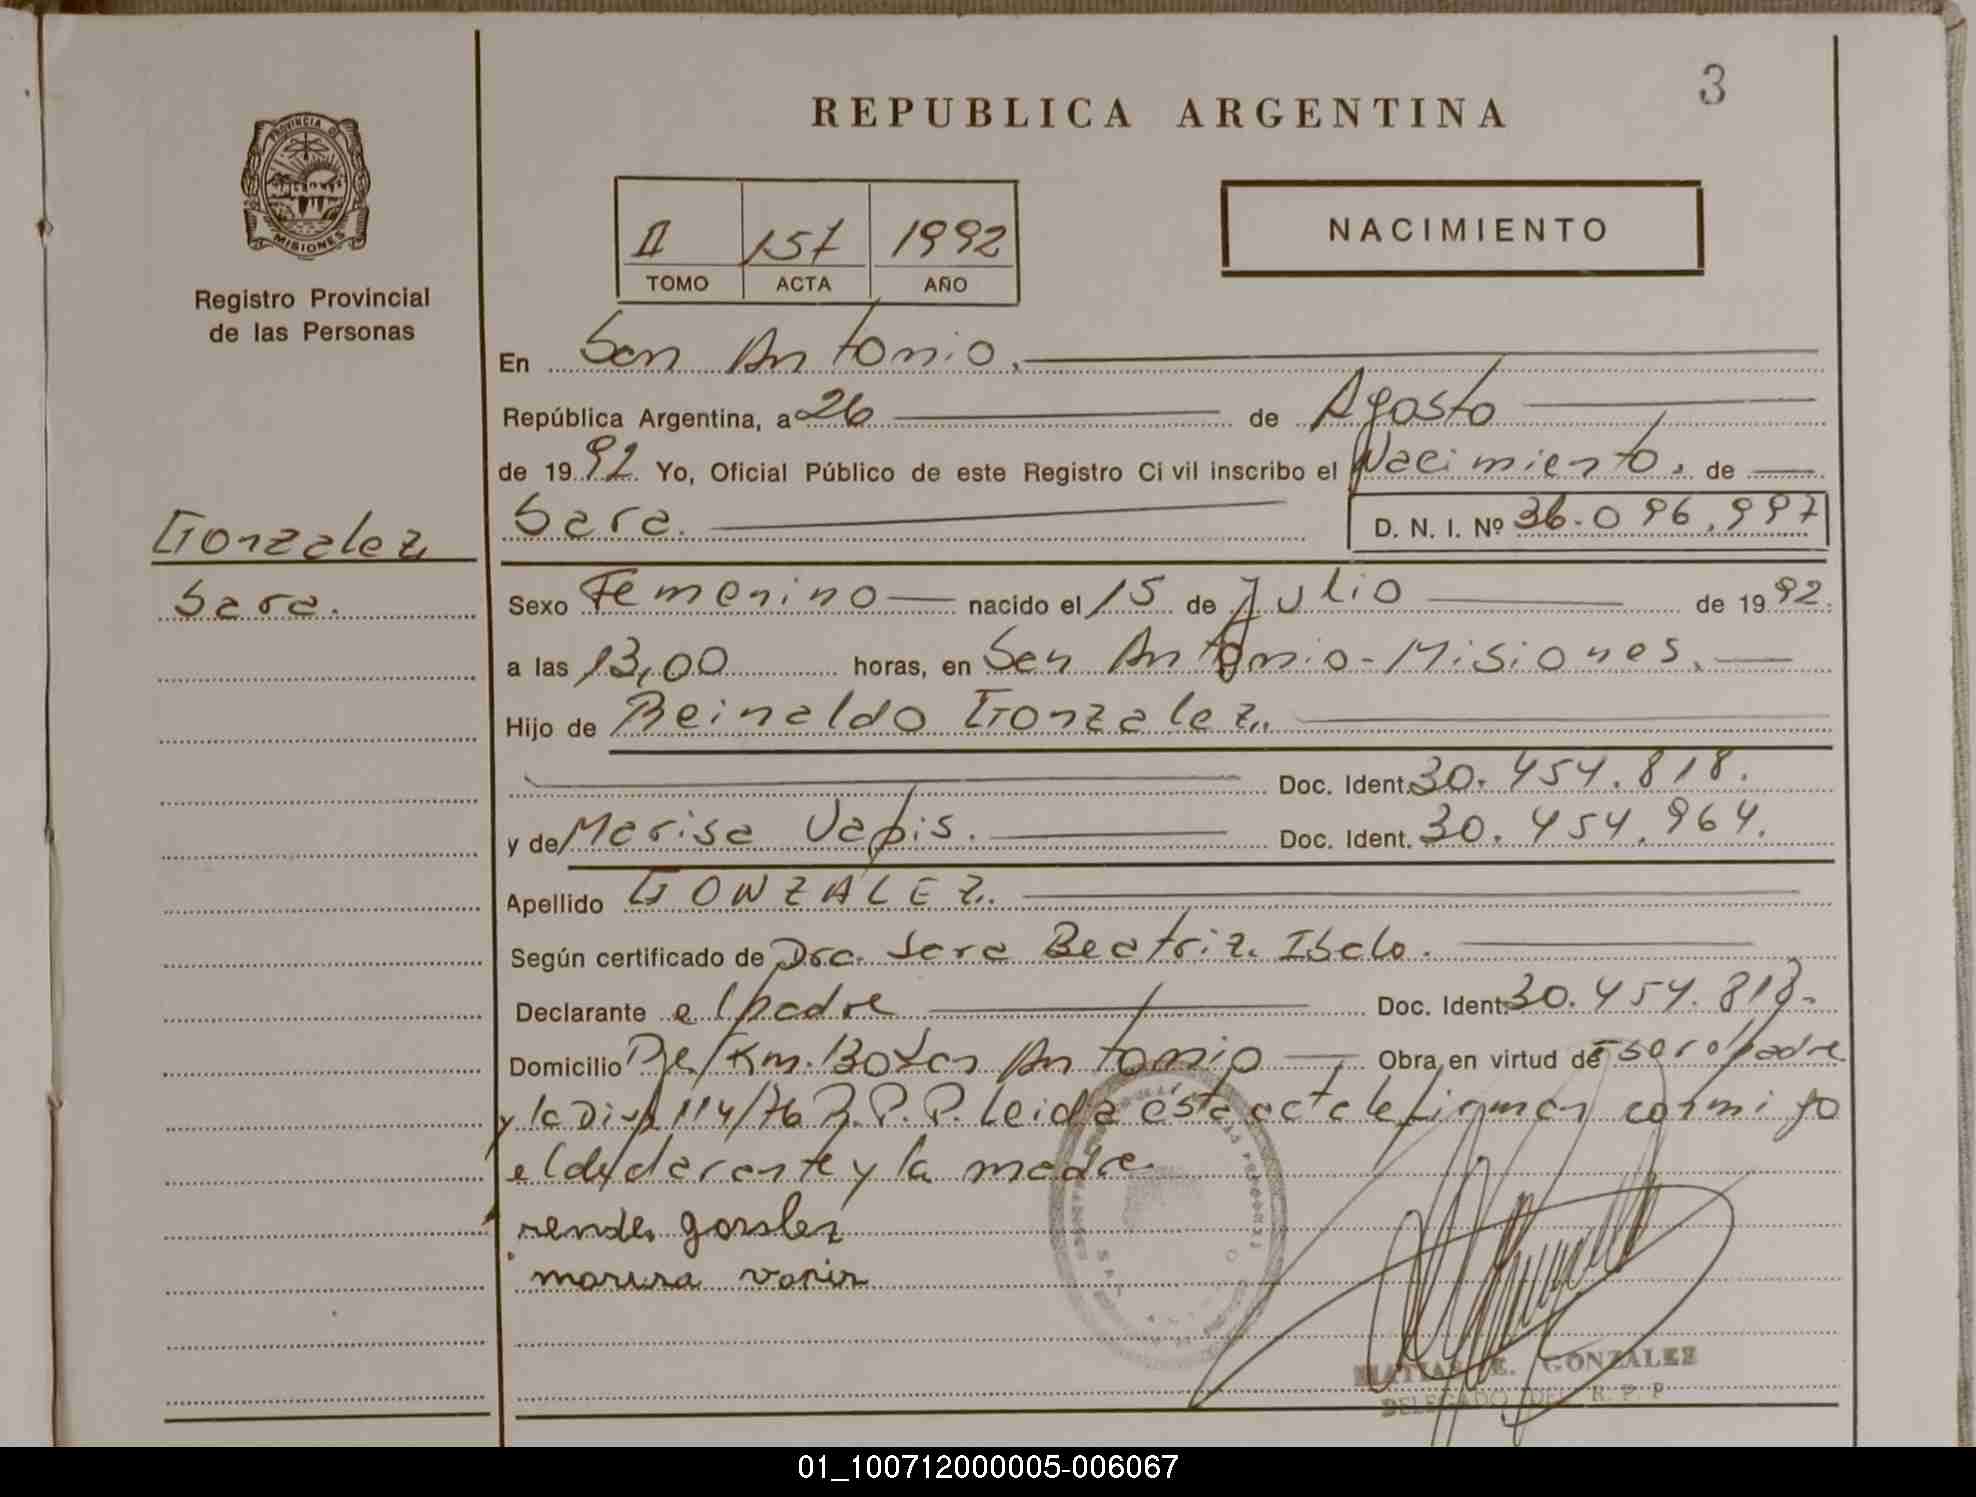 3
REPUBLICA ARGENTINA
PROVINCIA DE
MISIONES
Registro Provincial
de las Personas
II 157 1992
TOMO ACTA AÑO
NACIMIENTO
En San Antonio.
República Argentina, a 26 de Agosto
de 1992 Yo, Oficial Público de este Registro Civil inscribo el Nacimiento. de
Sara.
D. N. I. Nº 36.096.997
Gonzalez
Sara.
Sexo Femenino nacido el 15 de Julio de 1992.
a las 13,00 horas, en San Antonio-Misiones.
Hijo de Reinaldo Gonzalez.
Doc. Ident. 30.454.818.
y de Marisa Vapis. Doc. Ident. 30.454.964.
Apellido GONZALEZ.
Según certificado de Dra. Sara Beatriz Isalo.
Declarante el padre Doc. Ident. 30.454.818.
Domicilio Km. 130 San Antonio Obra en virtud de ser el padre
y la Disp 114/76 R.P.P. Leida esta acta le firman conmigo
el declarante y la madre.
MATIAS E. GONZALEZ
DELEGADO DEL R.P.P
01_100712000005-006067